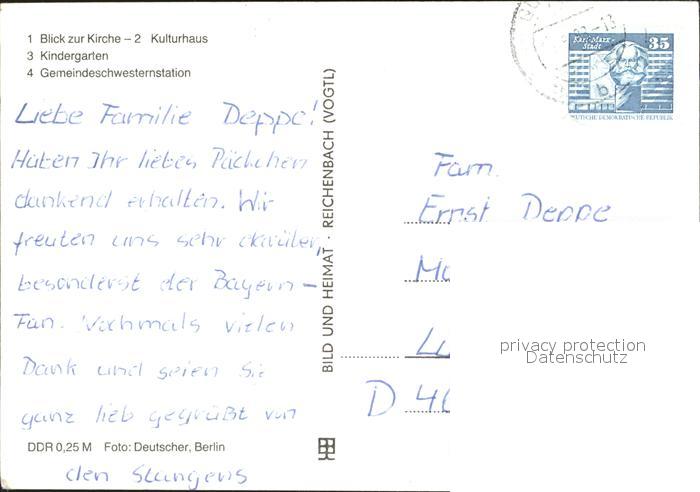 1 Blick zur Kirche – 2 Kulturhaus
3 Kindergarten
4 Gemeindeschwesternstation
Liebe Familie Deppe!
Haben Ihr liebes Päckchen
dankend erhalten. Wir
freuten uns sehr darüber,
besonderst der Bayern –
Fan. Nochmals vielen
Dank und seien Sie
ganz lieb gegrüßt von
den Stangens
DDR 0,25 M Foto: Deutscher, Berlin
BILD UND HEIMAT · REICHENBACH (VOGTL)
Karl-Marx-
Stadt
35
DEUTSCHE DEMOKRATISCHE REPUBLIK
b
Fam.
Ernst Deppe
D
privacy protection
Datenschutz